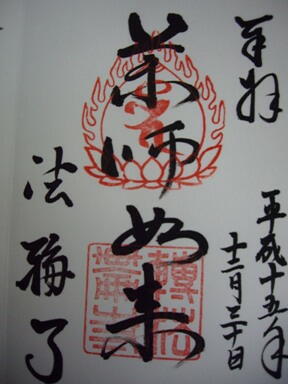 奉拝
平成十五年
十二月三十日
薬師如来
法輪寺